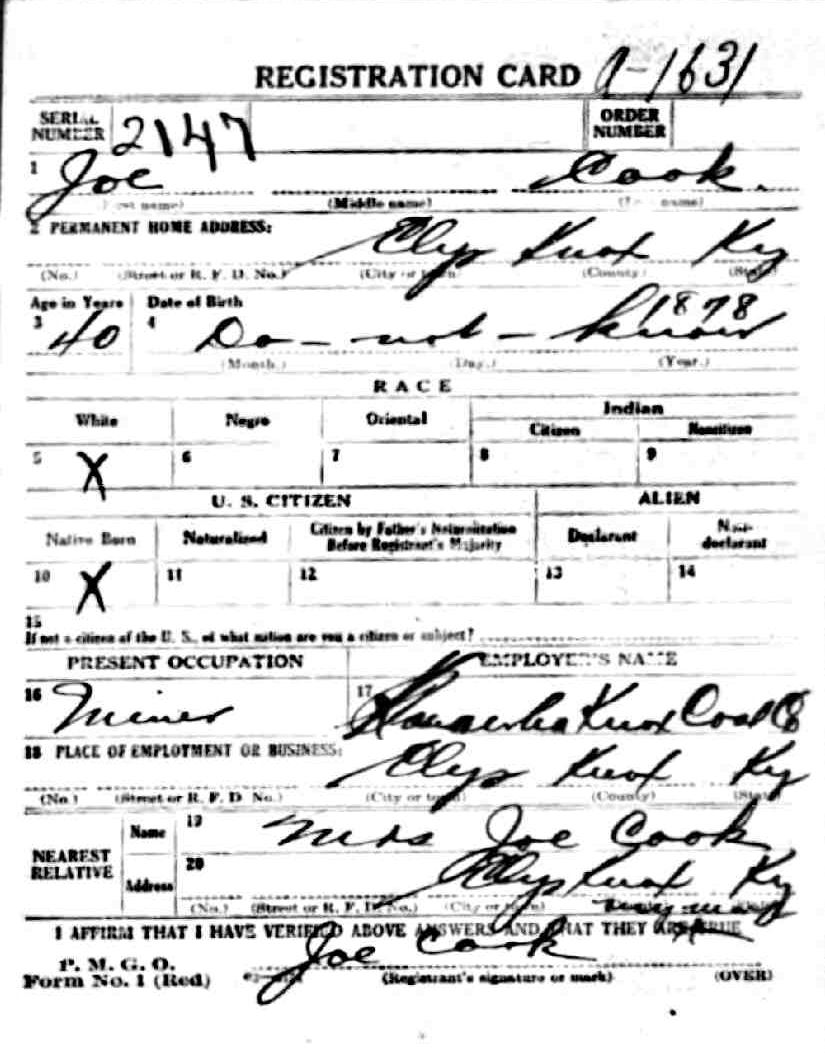 REGISTRATION CARD A-1631
SERIAL NUMBER 2147 ORDER NUMBER
1 Joe Cook.
(First name) (Middle name) (Last name)
2 PERMANENT HOME ADDRESS:
Elys Knox Ky
(No.) (Street or R. F. D. No.) (City or town) (County) (State)
Age in Years Date of Birth
1878
3 40 4 Do-not-know
(Month.) (Day.) (Year.)
RACE
White Negro Oriental Indian
Citizen Noncitizen
5 X 6 7 8 9
U. S. CITIZEN ALIEN
Native Born Naturalized Citizen by Father's Naturalization Before Registrant's Majority Declarant Non-declarant
10 X 11 12 13 14
15
If not a citizen of the U. S., of what nation are you a citizen or subject?
PRESENT OCCUPATION EMPLOYER'S NAME
16 Miner 17 Knox Coal Co
18 PLACE OF EMPLOYMENT OR BUSINESS:
Elys Knox Ky
(No.) (Street or R. F. D. No.) (City or town) (County) (State)
NEAREST RELATIVE
Name 19 Mrs Joe Cook
Address 20 Elys Knox Ky
(No.) (Street or R. F. D. No.) (City or town) (State)
I AFFIRM THAT I HAVE VERIFIED ABOVE ANSWERS AND THAT THEY ARE TRUE
P. M. G. O.
Form No. 1 (Red)
Joe Cook
(Registrant's signature or mark) (OVER)